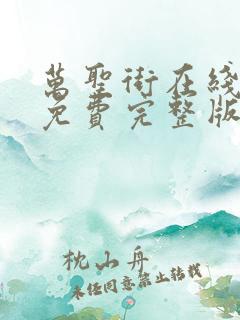 萬聖街在綫
免費完整版
枕山舟
未經同意禁止轉載